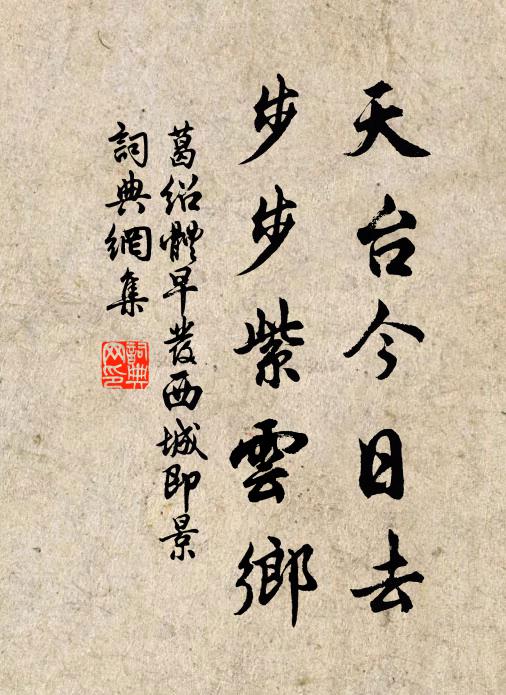 天台今日去
步步紫雲鄉
葛紹體早發西城即景
詞典網集
詞典网印